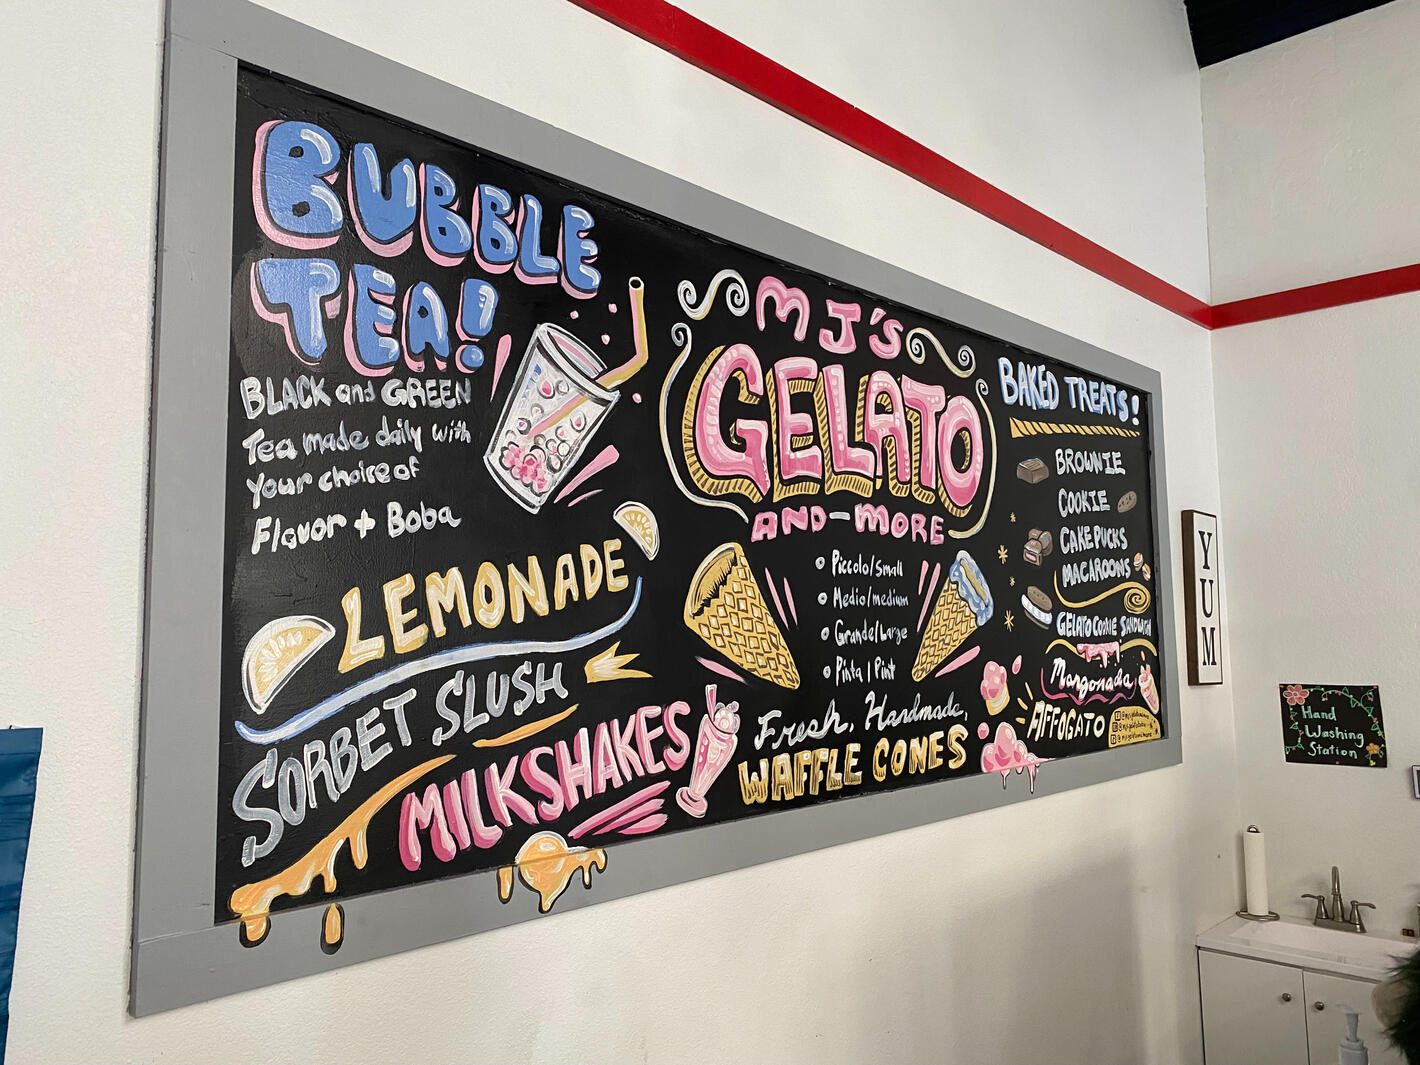 BUBBLE
TEA!
BLACK and GREEN
Tea made daily with
your choice of
Flavor + Boba
LEMONADE
SORBET SLUSH
MILKSHAKES
MJ'S
GELATO
AND-MORE
Piccolo/Small
Medio/medium
Grande/Large
Pinta/Pint
Fresh, Handmade,
WAFFLE CONES
BAKED TREATS!
BROWNIE
COOKIE
CAKE PUCKS
MACAROONS
GELATO COOKIE SANDWICH
Mangonada
AFFOGATO
YUM
Hand
Washing
Station